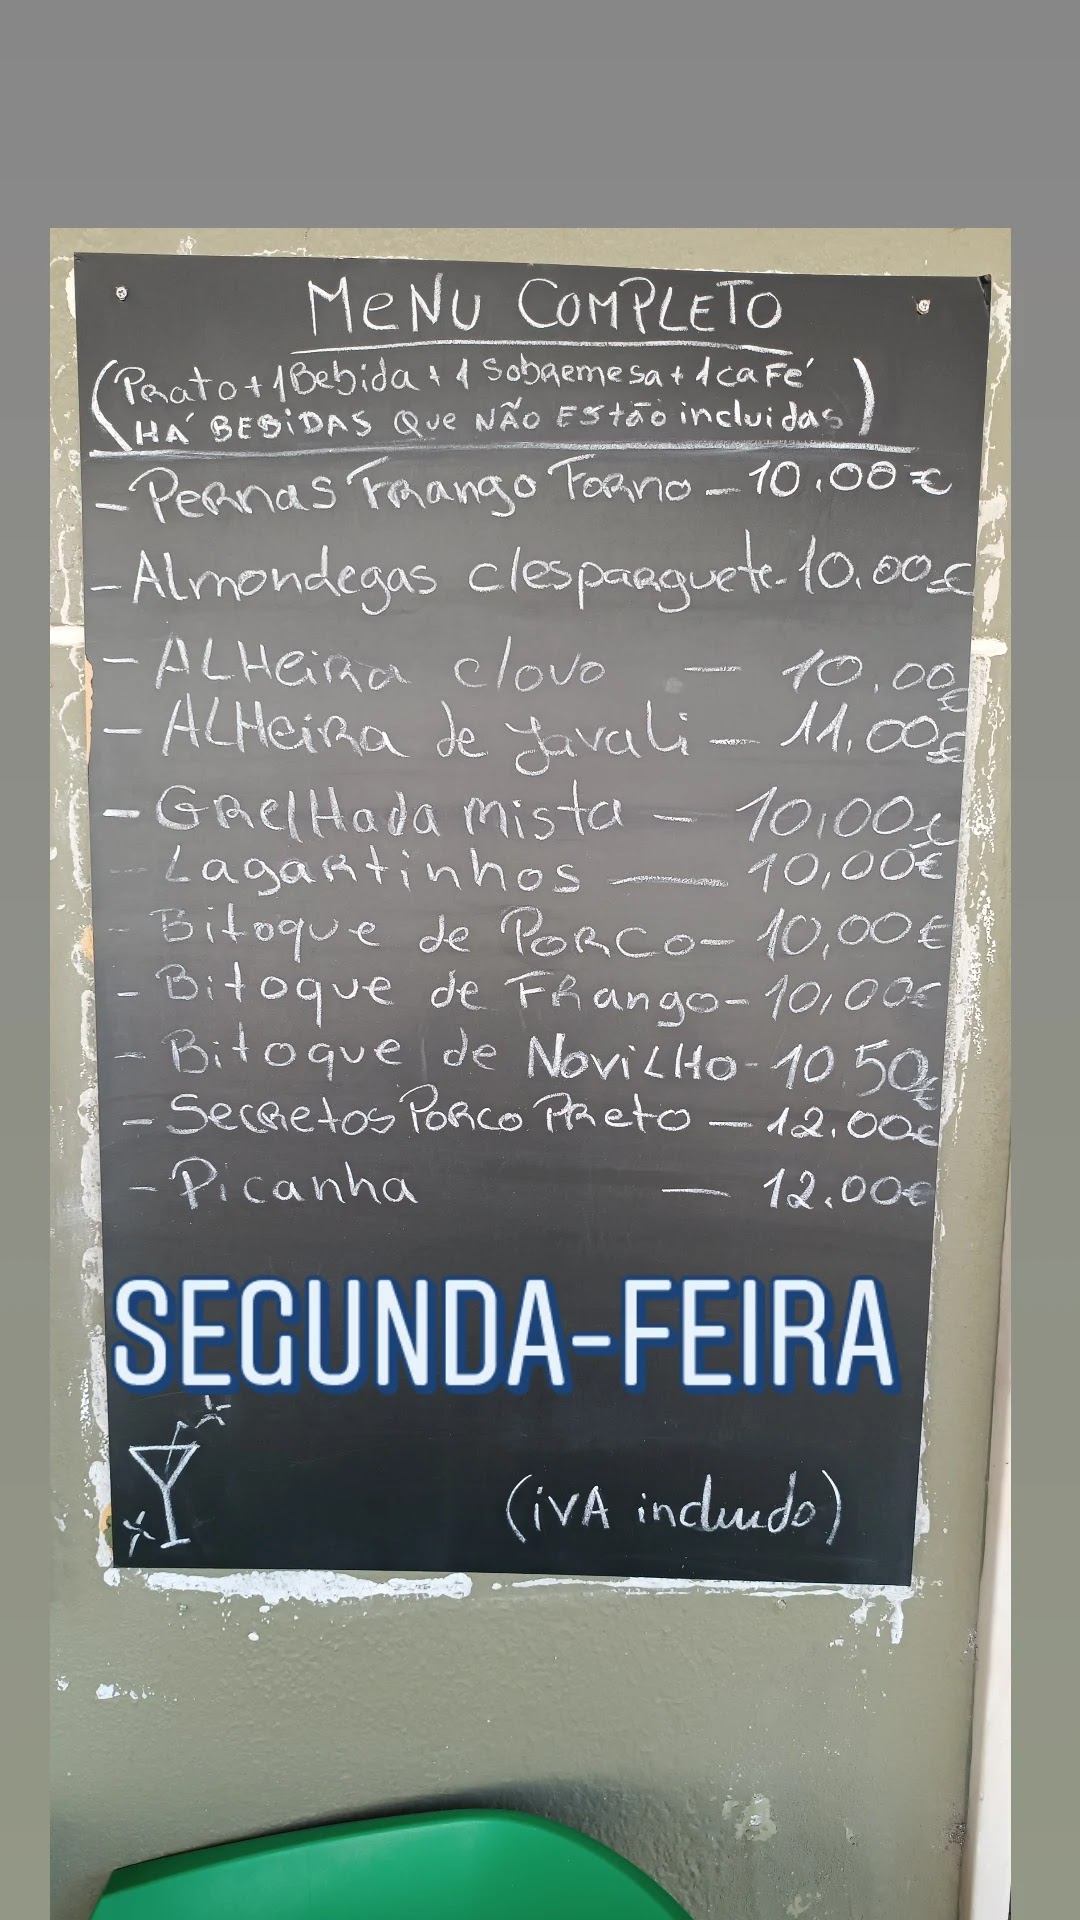 MENU COMPLETO
(Prato + 1 Bebida + 1 Sobremesa + 1 café
HÁ BEBIDAS QUE NÃO EStão incluidas)
- PERNAS FRANGO FORNO - 10.00€
- Almondegas c/esparguete - 10.00€
- ALHEIRA c/ovo - 10,00€
- ALHEIRA de Javali - 11.00€
- GRELHADA Mista - 10,00€
- Lagartinhos - 10,00€
- Bitoque de PORCO - 10,00€
- Bitoque de Frango - 10,00€
- Bitoque de NOVILHO - 10 50€
- Secretos PORCO PReto - 12.00€
- Picanha - 12.00€
SEGUNDA-FEIRA
(iVA incluido)